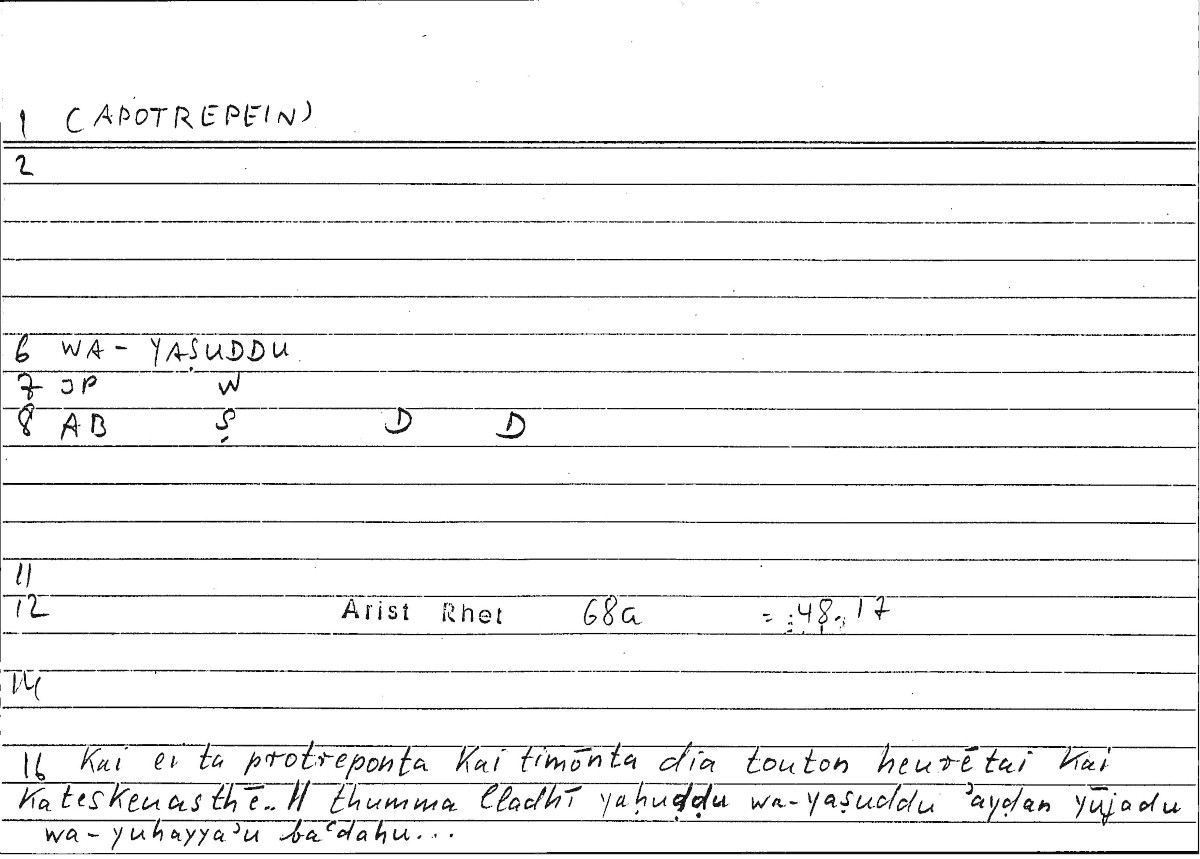 1 (APOTREPEIN)
2
6 WA- YAṢUDDU
7 JP W
8 AB Ṣ D D
11
12 Arist Rhet 68a = 48, 17
14
16 Kai ei ta protreponta kai timōnta dia touton heurētai kai
kateskeuasthē.. // thumma lladhī yaḥuḍḍu wa-yaṣuddu ʾayḍan yūjadu
wa-yuhayyaʾu baʿdahu...